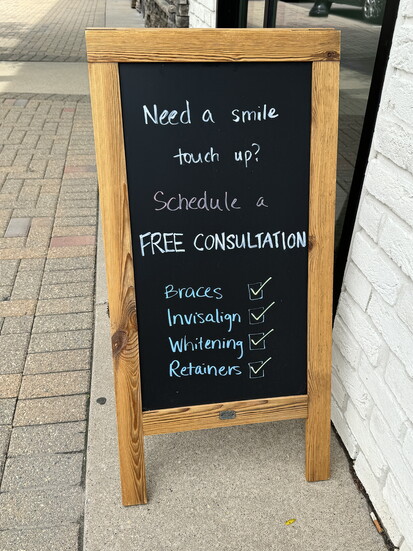 Need a smile
touch up?
Schedule a
FREE CONSULTATION
Braces ☑
Invisalign ☑
Whitening ☑
Retainers ☑